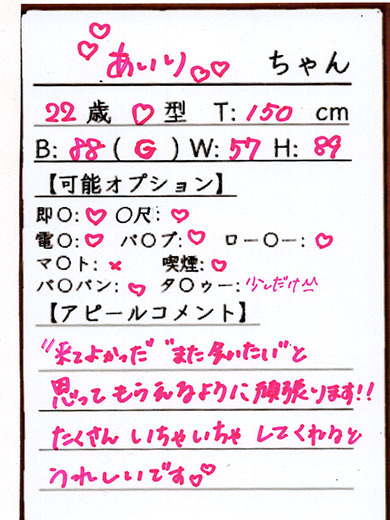 あいり♡♡ ちゃん
22歳 ♡型 T:150 cm
B:88(G)W:57 H:89
【可能オプション】
即〇:♡ 〇尺:♡
電〇:♡ バ〇ブ:♡ ロー〇ー:♡
マ〇ト:× 喫煙:♡
パ〇パン:♡ タ〇ゥー:少しだけ^^
【アピールコメント】
"来てよかった" "また会いたい"と
思ってもらえるように頑張ります!!
たくさん いちゃいちゃ してくれると
うれしいです♡♡